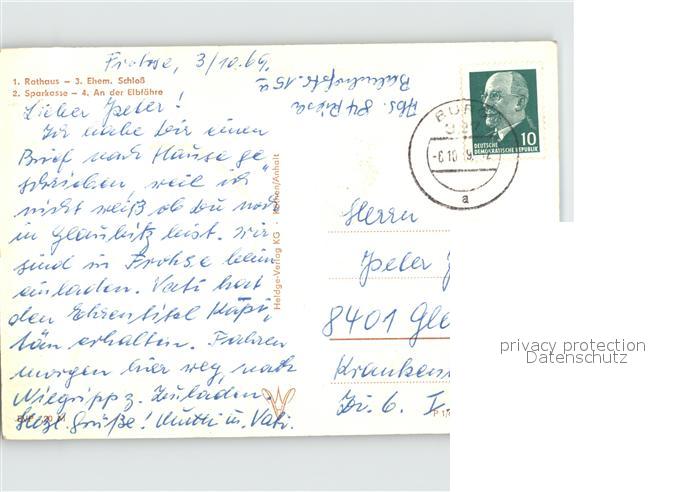 Frohse, 3/10.69.
1. Rathaus – 3. Ehem. Schloß
2. Sparkasse – 4. An der Elbfähre
Abs. 84 Riesa
Bahnhofstr. 15a
Lieber Peter!
Ich habe Dir einen
Brief nach Hause ge
schrieben, weil ich
nicht weiß ob Du noch
in Glaubitz bist. Wir
sind in Frohse beim
ausladen. Vati hat
den Ehrentitel Kapi,
tän erhalten. Fahren
morgen hier weg, nach
Niegripp z. Zuladen.
Herzl Grüße! Mutti u. Vati.
Heldge-Verlag KG · Köthen/Anhalt
BURG
DEUTSCHE
DEMOKRATISCHE REPUBLIK
10
a
Herrn
Peter
8401 Gla
Kranken
Zi. 6. I
privacy protection
Datenschutz